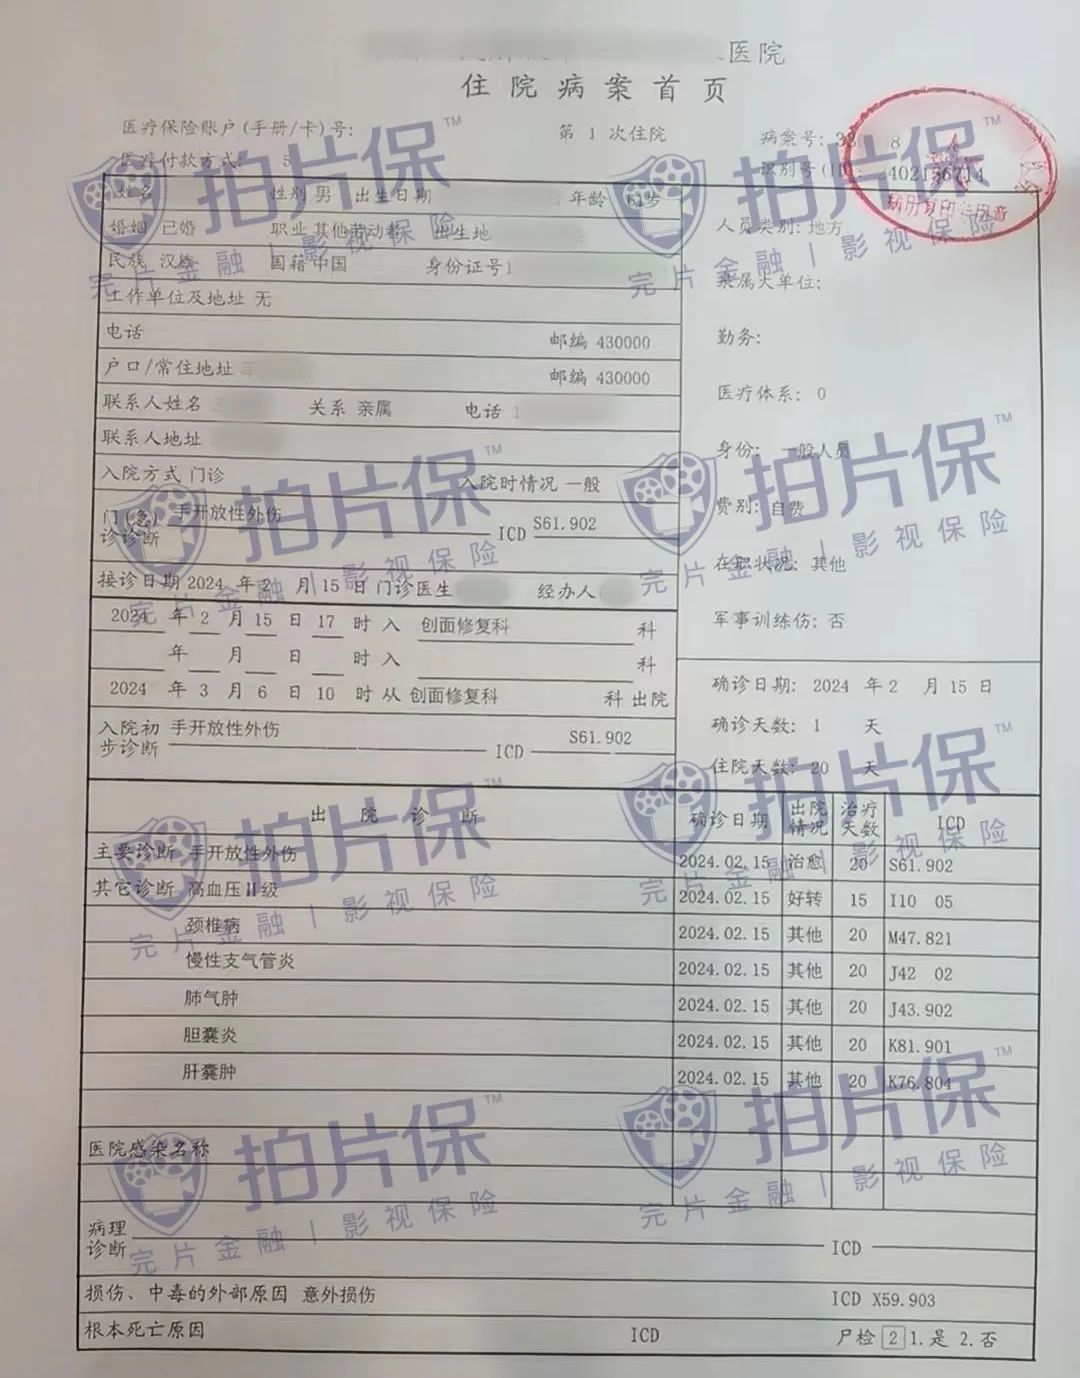 医院
住院病案首页
医疗保险账户(手册/卡)号:
第 1 次住院
病案号: 33 8
医疗付款方式: 5
识别号(ID 402156714
病历复印专用章
姓名 性别 男 出生日期 年龄 61岁
婚姻 已婚 职业 其他劳动者 出生地
人员类别: 地方
民族 汉族 国籍 中国 身份证号1
隶属大单位:
工作单位及地址 无
电话 邮编 430000
勤务:
户口/常住地址 邮编 430000
医疗体系: 0
联系人姓名 关系 亲属 电话 1
联系人地址
身份: 一般人员
入院方式 门诊 入院时情况 一般
费别: 自费
门(急)诊诊断 手开放性外伤 ICD S61.902
在职状况: 其他
接诊日期 2024 年 2 月 15 日 门诊医生 经办人
军事训练伤: 否
2024 年 2 月 15 日 17 时 入 创面修复科 科
年 月 日 时 入 科
2024 年 3 月 6 日 10 时 从 创面修复科 科 出院
确诊日期: 2024 年 2 月 15 日
确诊天数: 1 天
入院初步诊断 手开放性外伤 ICD S61.902
住院天数: 20 天
出院诊断 确诊日期 出院情况 治疗天数 ICD
主要诊断 手开放性外伤 2024.02.15 治愈 20 S61.902
其它诊断 高血压Ⅱ级 2024.02.15 好转 15 I10 05
颈椎病 2024.02.15 其他 20 M47.821
慢性支气管炎 2024.02.15 其他 20 J42 02
肺气肿 2024.02.15 其他 20 J43.902
胆囊炎 2024.02.15 其他 20 K81.901
肝囊肿 2024.02.15 其他 20 K76.804
医院感染名称
病理诊断 ICD
损伤、中毒的外部原因 意外损伤 ICD X59.903
根本死亡原因 ICD 尸检 2 1.是 2.否
拍片保™
完片金融 | 影视保险
拍片保™
完片金融 | 影视保险
拍片保™
完片金融 | 影视保险
拍片保™
完片金融 | 影视保险
拍片保™
完片金融 | 影视保险
拍片保™
完片金融 | 影视保险
拍片保™
完片金融 | 影视保险
拍片保™
完片金融 | 影视保险